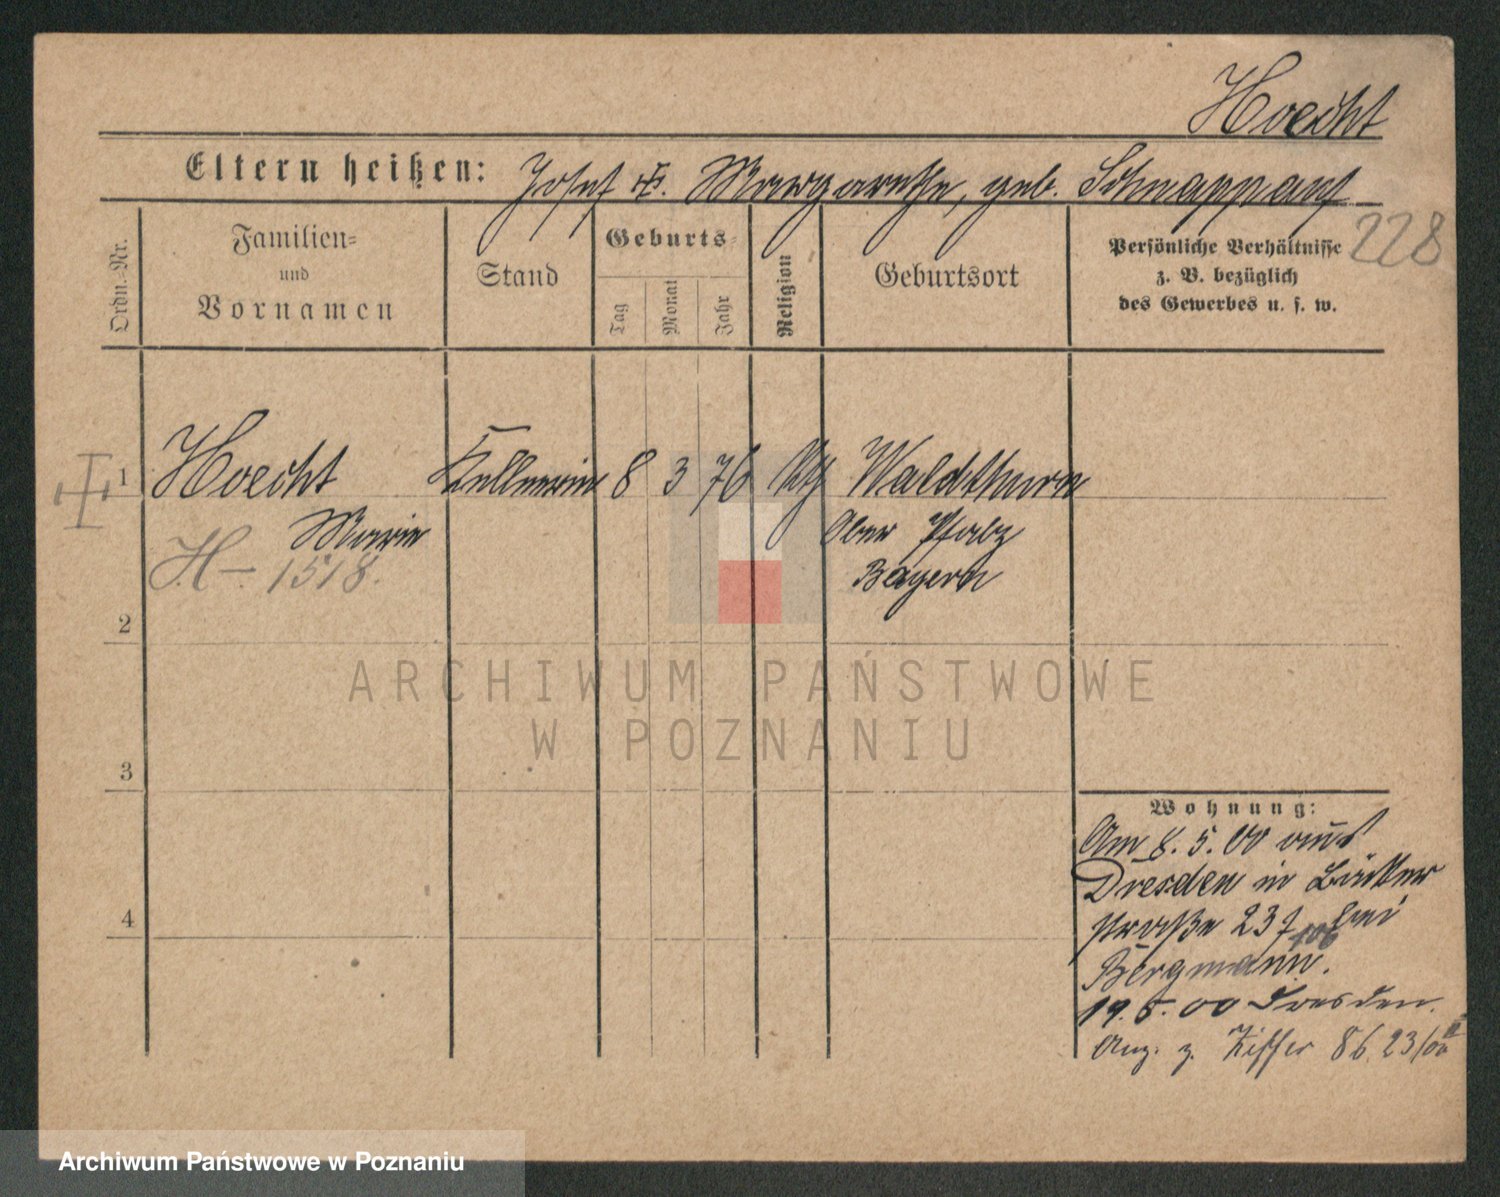 Hoecht
Eltern heißen: Josef u. Margarethe, geb. Schnappauf
228
Ordn.-Nr.
Familien-
und
Vornamen
Stand
Geburts-
Tag
Monat
Jahr
Religion
Geburtsort
Persönliche Verhältnisse
z. B. bezüglich
des Gewerbes u. s. w.
1 Hoecht Kellnerin 8 3 76 kth Waldthurn
Marie Ober Pfalz
H-1518. Bayern
2
3
4
ARCHIWUM PAŃSTWOWE
W POZNANIU
Wohnung:
Am 8. 5. 00 aus
Dresden in
straße 23 bei
Bergmann.
19. 5. 00 Dresden.
Anz. z. Ziffer 86. 23/00
Archiwum Państwowe w Poznaniu